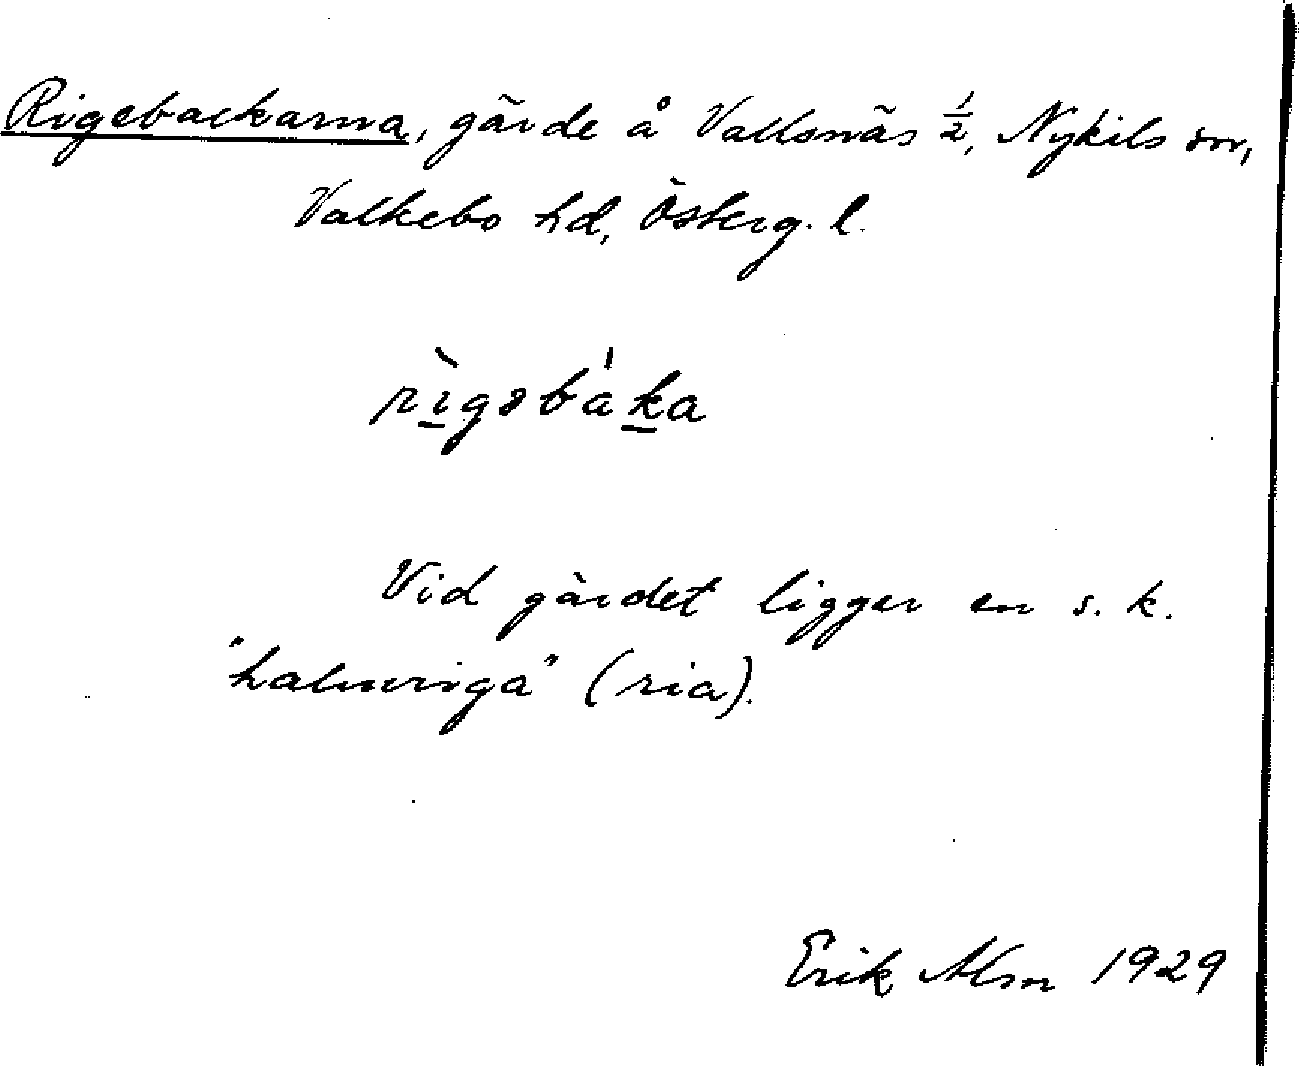 Rigebackarna, gärde å Vallsnäs ½, Nykils sn,
Valkebo hd, Österg. l.
rìgəbáka
Vid gärdet ligger en s. k.
"halmriga" (ria).
Erik Alm 1929